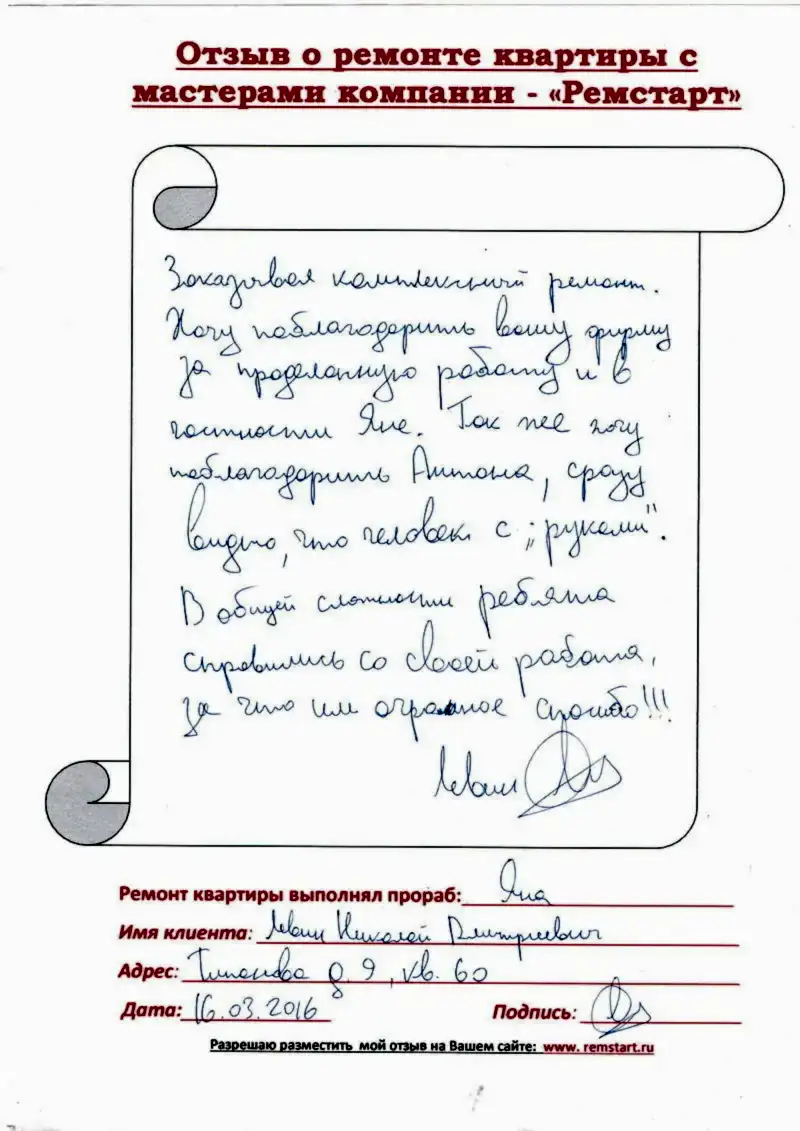 Отзыв о ремонте квартиры с
мастерами компании - «Ремстарт»
Заказывал комплексный ремонт.
Хочу поблагодарить вашу фирму
за проделанную работу и в
частности Яне. Так же хочу
поблагодарить Антона, сразу
видно, что человек с „руками".
В общей сложности ребята
справились со своей работа,
за что им огромное спасибо!!!
Ремонт квартиры выполнял прораб: Яна
Имя клиента: Николай Дмитриевич
Адрес: д. 9, кв. 60
Дата: 16.03.2016 Подпись:
Разрешаю разместить мой отзыв на Вашем сайте: www. remstart.ru